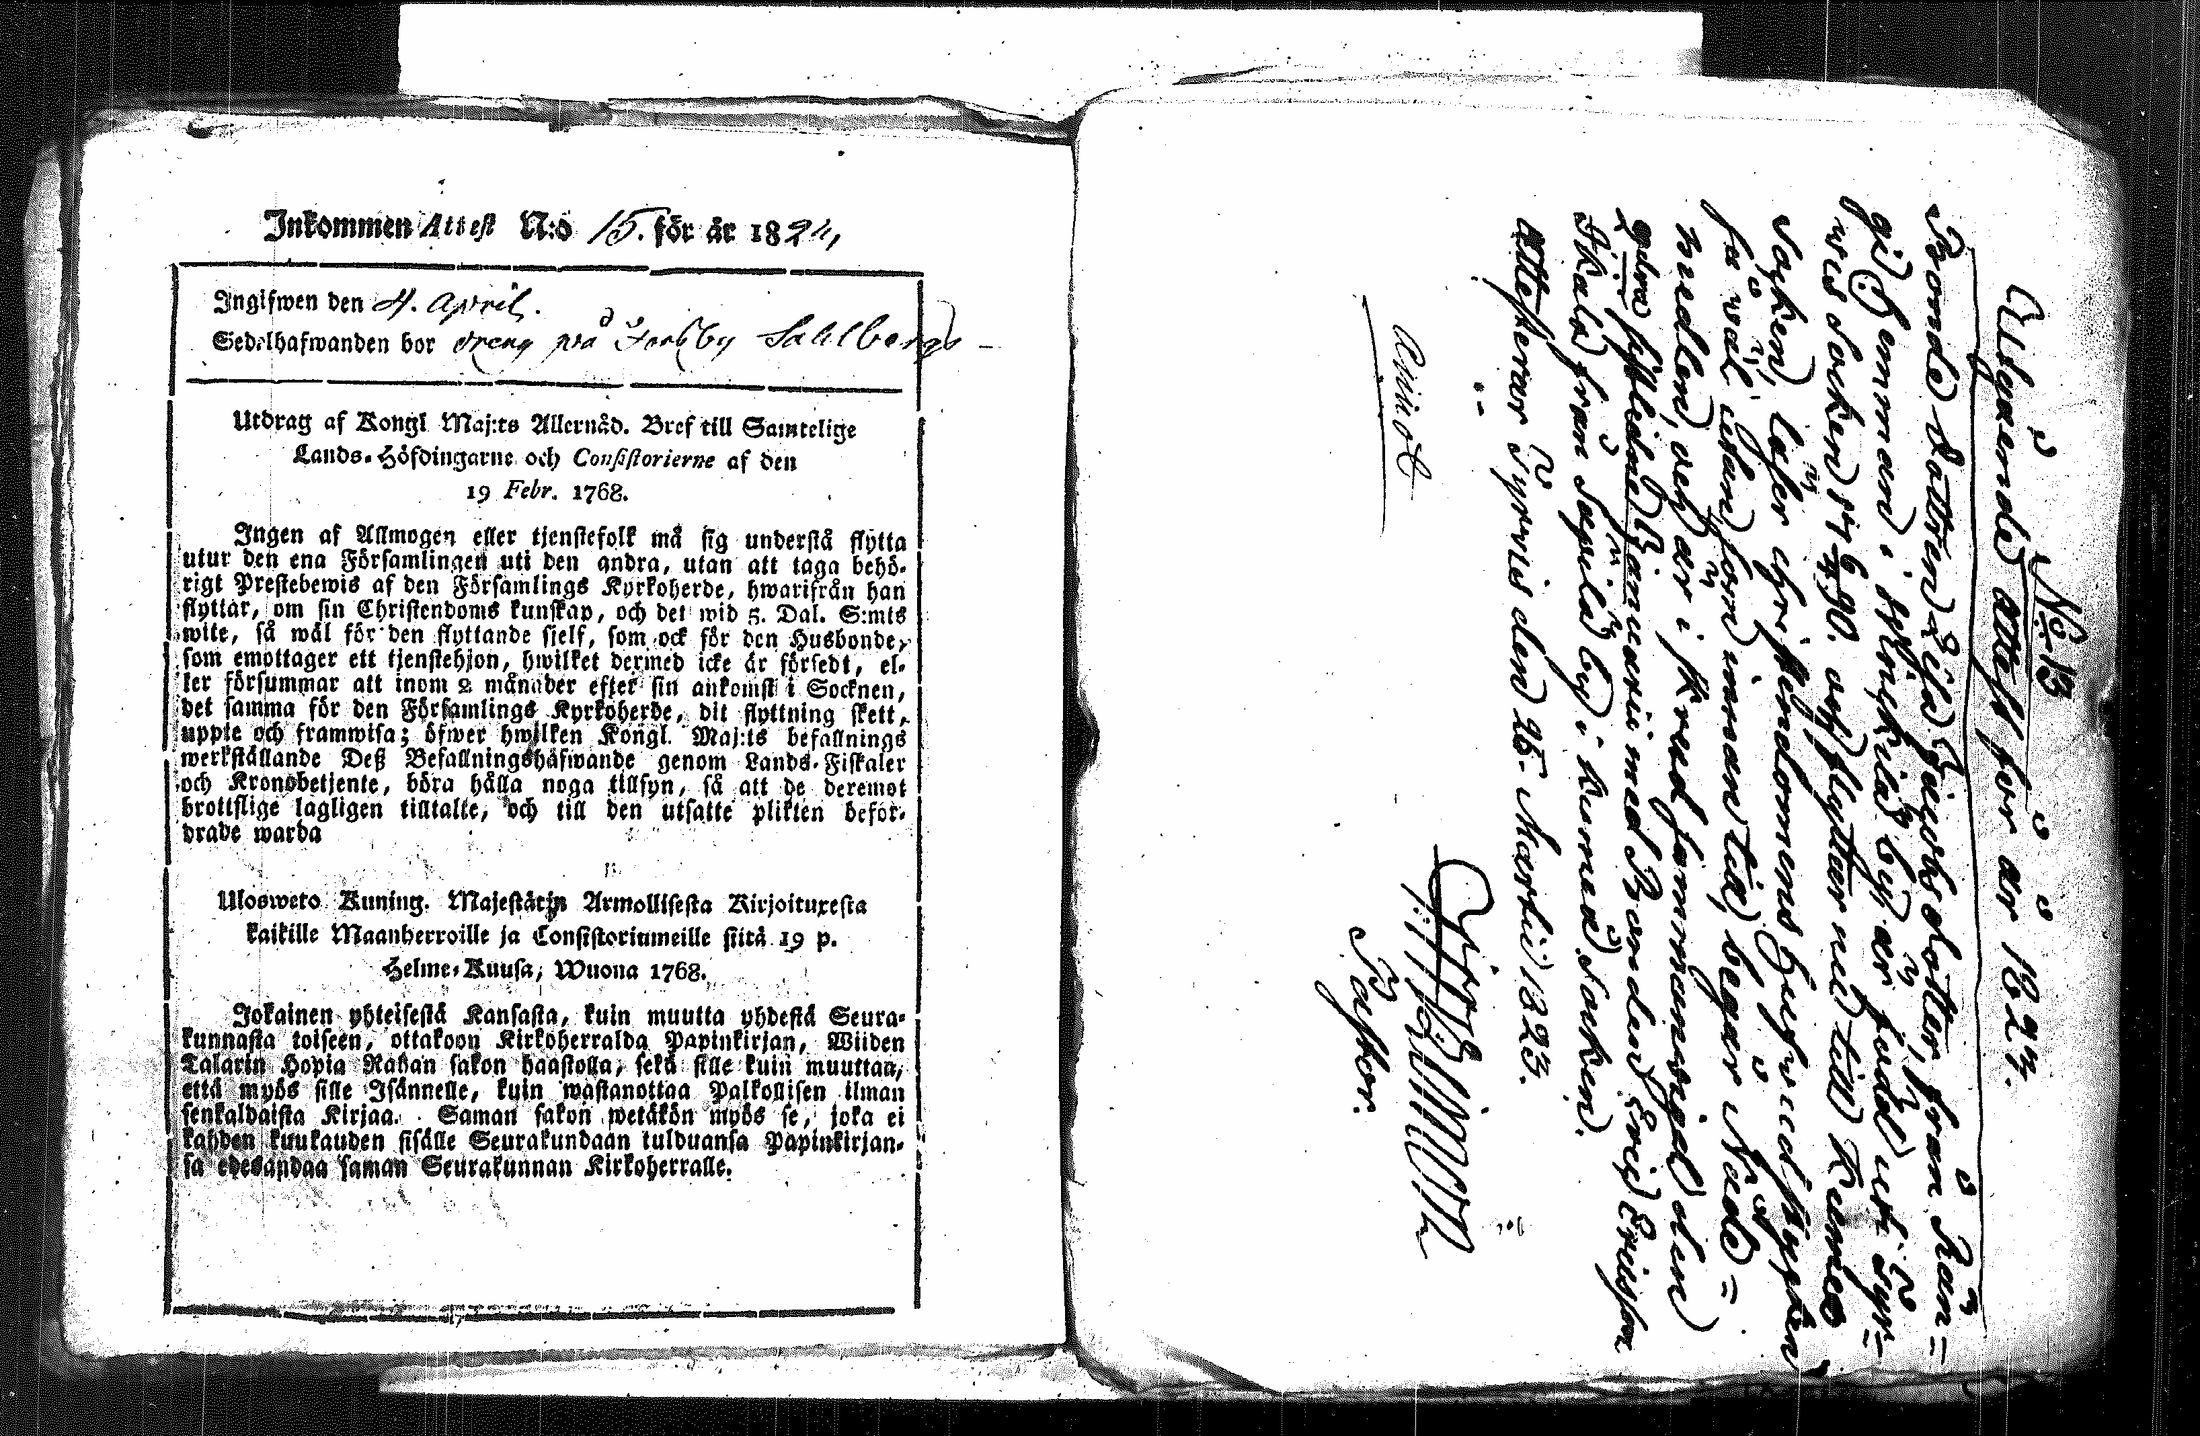 Inkommen Attest N:o 15. för år 1824,
Ingifwen den 4. April.
Sedelhafwanden bor dreng på Jerfby Sahlbergs
Utdrag af Kongl. Maj:ts Allernåd. Bref till Samtelige
Lands-Höfdingarne och Consistorierne af den
19 Febr. 1768.
Ingen af Allmogen eller tjenstefolk må sig understå flytta
utur den ena Församlingen uti den andra, utan att taga behö-
rigt Prestebewis af den Församlings Kyrkoherde, hwarifrån han
flyttar, om sin Christendoms kunskap, och det wid 5. Dal. S:mts
wite, så wäl för den flyttande sjelf, som ock för den Husbonde,
som emottager ett tjenstehjon, hwilket dermed icke är försedt, el-
ler försummar att inom 2 månader efter sin ankomst i Socknen,
det samma för den Församlings Kyrkoherde, dit flyttning skett,
uppte och framwisa; öfwer hwilken Kongl. Maj:ts befallnings
werkställande Deß Befallningshafwande genom Lands-Fiskaler
och Kronobetjente, böra hålla noga tillsyn, så att de deremot
brottslige lagligen tilltalte, och till den utsatte plikten befor-
drade warda
Ulosweto Kuning. Majestätin Armollisesta Kirjoituxesta
kaikille Maanherroille ja Consistoriumeille siitä 19 p.
Helme-Kuusa, Wuona 1768.
Jokainen yhteisestä Kansasta, kuin muutta yhdestä Seura-
kunnasta toiseen, ottakoon Kirkoherralda Papinkirjan, Wiiden
Talarin Hopia Rahan sakon haastolla, sekä sille kuin muuttaa,
että myös sille Isännelle, kuin wastanottaa Palkollisen ilman
senkaldaista Kirjaa. Saman sakon wetäkön myös se, joka ei
kahden kuukauden sisälle Seurakundaan tulduansa Papinkirjan-
sa edesandaa saman Seurakunnan Kirkoherralle.
N:o 13
Utgående attest för år 1824.
Bonde dottren Lisa Jacobsdotter, från Rän-
gi Hemman i by, är född uti Tyr-
wis Socken 17 6/4 90. afflyttar nu till Kumo
Socken, läser christendomens hufwudstycken
så wäl utan som innan till, begår Nåde-
medlen, och är i kred sammanwigd den
sistledne Januarii med Bonden Eric Ericsson
Skals från Sæpilä by i Kumo Socken.
attesterar Tyrvis den 26 Martii 1823.
Pastor.